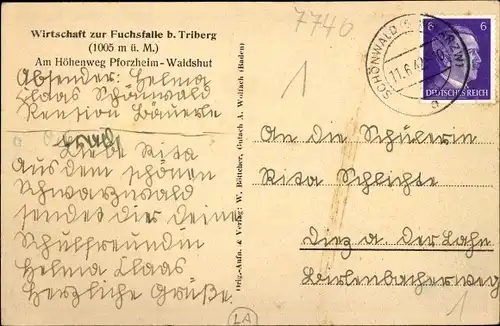 Wirtschaft zur Fuchsfalle b. Triberg
(1005 m ü. M.)
Am Höhenweg Pforzheim-Waldshut
Absender: Helma
Claas Schönwald
Pension Bäuerle
Liebe Rita
Aus dem schönen
Schwarzwald
sendet dir deine
Schulfreundin
Helma Claas
Herzliche Grüße.
Orig.-Aufn. & Verlag: W. Böttcher, Gutach A. Wolfach (Baden)
7746
1
SCHÖNWALD (SCHWARZW)
11.6.42
a
6 6
DEUTSCHES REICH
An die Schülerin
Rita Schlichte
Diez a. der Lahn
Birlenbacherweg
1
LA